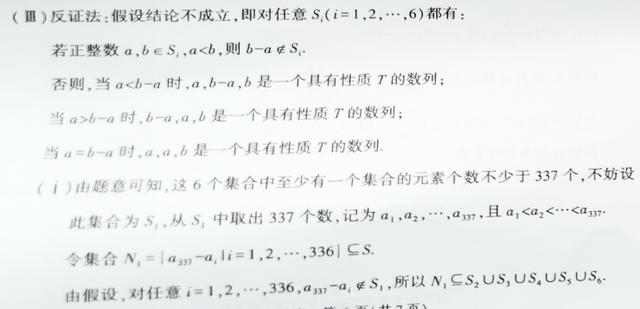 (Ⅲ)反证法:假设结论不成立,即对任意 Sᵢ(i=1,2,⋯,6)都有:
若正整数 a,b∈Sᵢ,a<b,则 b-a∉Sᵢ.
否则,当 a<b-a 时,a,b-a,b 是一个具有性质 T 的数列;
当 a>b-a 时,b-a,a,b 是一个具有性质 T 的数列;
当 a=b-a 时,a,a,b 是一个具有性质 T 的数列.
(ⅰ)由题意可知,这 6 个集合中至少有一个集合的元素个数不少于 337 个,不妨设
此集合为 S₁,从 S₁ 中取出 337 个数,记为 a₁,a₂,⋯,a₃₃₇,且 a₁<a₂<⋯<a₃₃₇.
令集合 N₁={a₃₃₇-aᵢ|i=1,2,⋯,336}⊆S.
由假设,对任意 i=1,2,⋯,336,a₃₃₇-aᵢ∉S₁,所以 N₁⊆S₂∪S₃∪S₄∪S₅∪S₆.